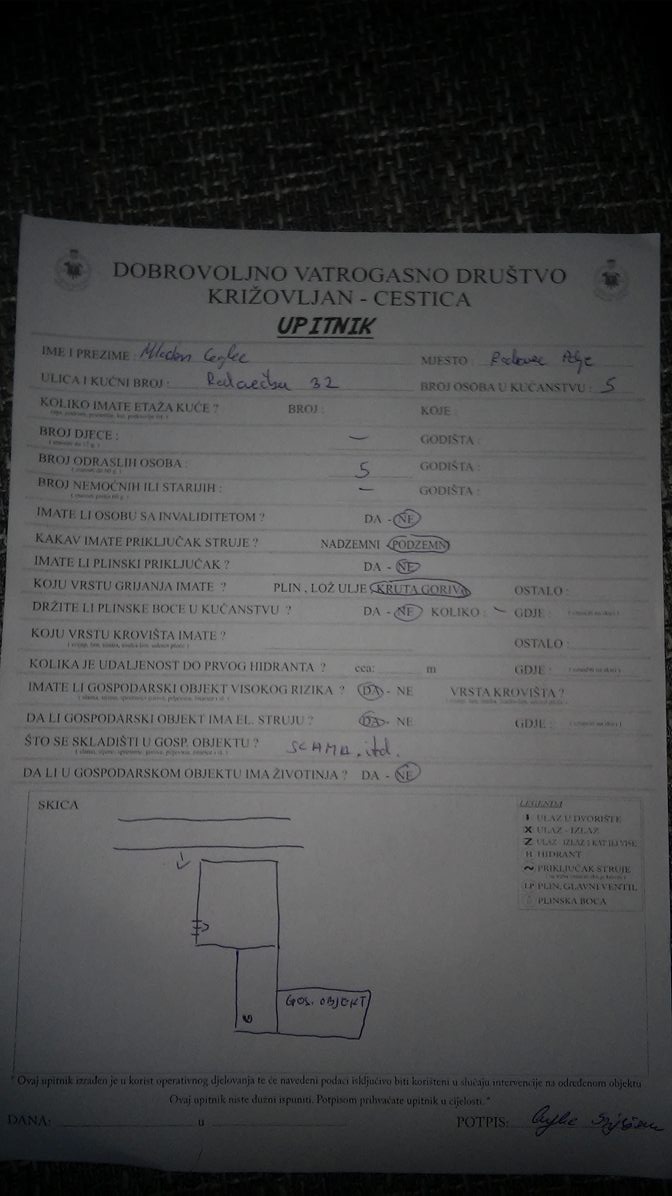 DOBROVOLJNO VATROGASNO DRUŠTVO
KRIŽOVLJAN - CESTICA
UPITNIK
IME I PREZIME : Mladen Ceglec MJESTO : Radovec Polje
ULICA I KUĆNI BROJ : 32 BROJ OSOBA U KUĆANSTVU : 5
KOLIKO IMATE ETAŽA KUĆE ? BROJ : KOJE :
BROJ DJECE : — GODIŠTA :
BROJ ODRASLIH OSOBA : 5 GODIŠTA :
BROJ NEMOĆNIH ILI STARIJIH : — GODIŠTA :
IMATE LI OSOBU SA INVALIDITETOM ? DA - NE
KAKAV IMATE PRIKLJUČAK STRUJE ? NADZEMNI - PODZEMNI
IMATE LI PLINSKI PRIKLJUČAK ? DA - NE
KOJU VRSTU GRIJANJA IMATE ? PLIN , LOŽ ULJE KRUTA GORIVA OSTALO :
DRŽITE LI PLINSKE BOCE U KUĆANSTVU ? DA - NE KOLIKO : – GDJE :
KOJU VRSTU KROVIŠTA IMATE ? OSTALO :
KOLIKA JE UDALJENOST DO PRVOG HIDRANTA ? cca: m GDJE :
IMATE LI GOSPODARSKI OBJEKT VISOKOG RIZIKA ? DA - NE VRSTA KROVIŠTA ?
DA LI GOSPODARSKI OBJEKT IMA EL. STRUJU ? DA - NE GDJE :
ŠTO SE SKLADIŠTI U GOSP. OBJEKTU ? SLAMA, itd.
DA LI U GOSPODARSKOM OBJEKTU IMA ŽIVOTINJA ? DA - NE
SKICA
LEGENDA
ULAZ U DVORIŠTE
X ULAZ - IZLAZ
Z ULAZ - IZLAZ 1 KAT ILI VIŠE
H HIDRANT
~ PRIKLJUČAK STRUJE
PLIN. GLAVNI VENTIL
PLINSKA BOCA
GOS. OBJEKT
" Ovaj upitnik izrađen je u korist operativnog djelovanja te će navedeni podaci isključivo biti korišteni u slučaju intervencije na određenom objektu
Ovaj upitnik niste dužni ispuniti. Potpisom prihvaćate upitnik u cijelosti."
DANA: u POTPIS: